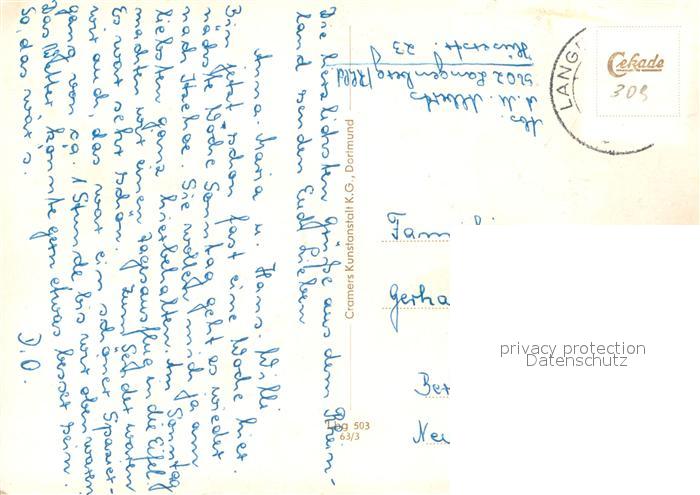 Die herzlichsten Grüße aus dem Rhein-
land senden Euch Lieben
Anna-Maria u. Hans-Willi
Bin jetzt schon fast eine Woche hier.
nächste Woche Sonntag geht es wieder
nach Itzehoe. Sie wollen mich ja am
liebsten ganz hierbehalten. Am Sonntag
machten wir einen Tagesausflug in die Eifel.
Es war sehr schön. Zum See waren
wir auch, das war ein schöner Spazier-
gang von ca. 1 Stunde bis wir oben waren.
Das Wetter könnte gern etwas besser sein.
So, das wär's.
D.O.
Abs.
5602 Langenberg/Rhld
23
Cramers Kunstanstalt K.G., Dortmund
LANG
Cekade
309
Fam
Gerha
Bet
Neu
Lbg 503
63/3
privacy protection
Datenschutz